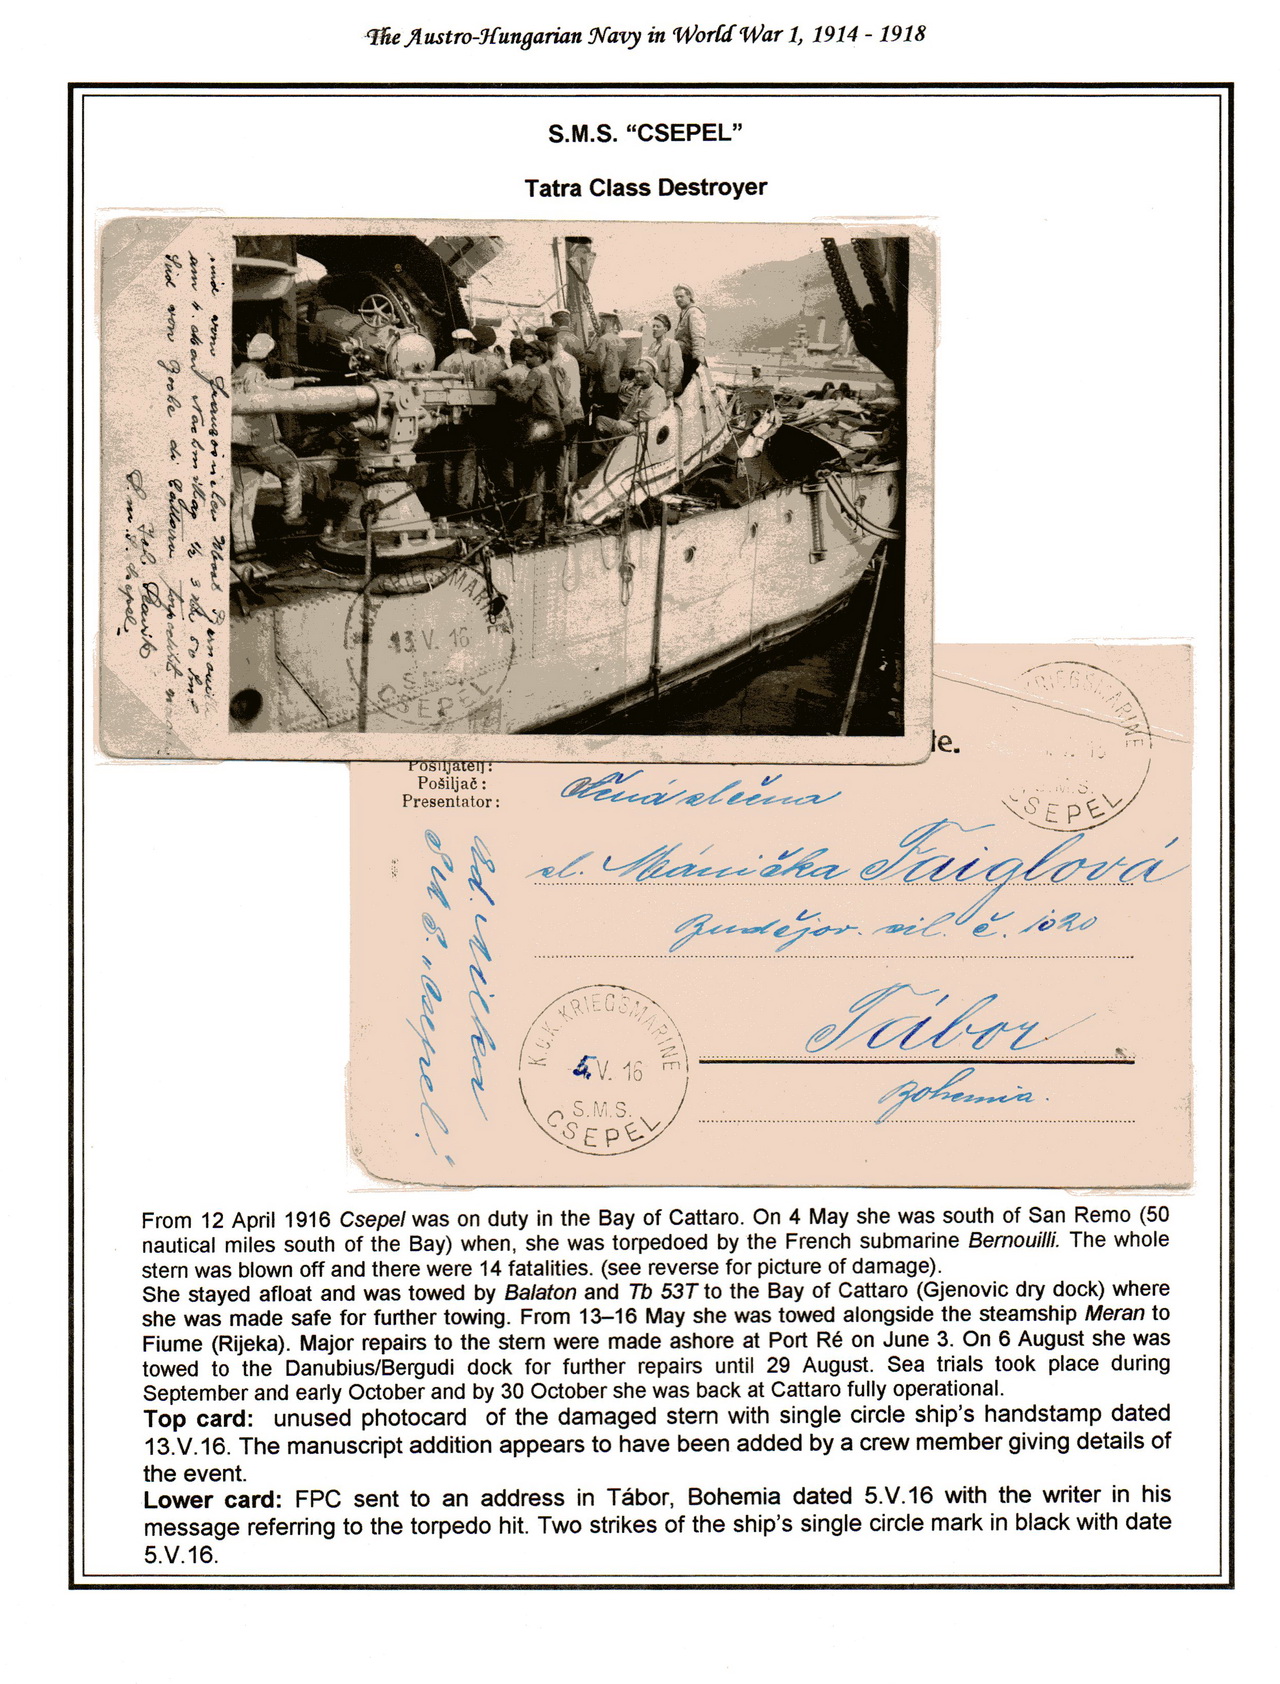 The Austro-Hungarian Navy in World War 1, 1914 - 1918
S.M.S. “CSEPEL”
Tatra Class Destroyer
am 4. Mai Nachmittag ½ 3 Uhr 50 Sm
Süd von Bocche di Cattaro torpediert
S.M.S. Csepel
KRIEGSMARINE
13.V.16
S.M.S.
CSEPEL
te.
KRIEGSMARINE
S.M.S.
CSEPEL
Pošiljatelj:
Pošiljač:
Presentator:
Ctěná slečna
sl. Mánička Faiglová
Budějov. sil. č. 1020
Tábor
Bohemia.
S.M.S. "Csepel."
K.U.K. KRIEGSMARINE
5.V. 16
S.M.S.
CSEPEL
From 12 April 1916 Csepel was on duty in the Bay of Cattaro. On 4 May she was south of San Remo (50
nautical miles south of the Bay) when, she was torpedoed by the French submarine Bernouilli. The whole
stern was blown off and there were 14 fatalities. (see reverse for picture of damage).
She stayed afloat and was towed by Balaton and Tb 53T to the Bay of Cattaro (Gjenovic dry dock) where
she was made safe for further towing. From 13–16 May she was towed alongside the steamship Meran to
Fiume (Rijeka). Major repairs to the stern were made ashore at Port Ré on June 3. On 6 August she was
towed to the Danubius/Bergudi dock for further repairs until 29 August. Sea trials took place during
September and early October and by 30 October she was back at Cattaro fully operational.
Top card: unused photocard of the damaged stern with single circle ship's handstamp dated
13.V.16. The manuscript addition appears to have been added by a crew member giving details of
the event.
Lower card: FPC sent to an address in Tábor, Bohemia dated 5.V.16 with the writer in his
message referring to the torpedo hit. Two strikes of the ship's single circle mark in black with date
5.V.16.